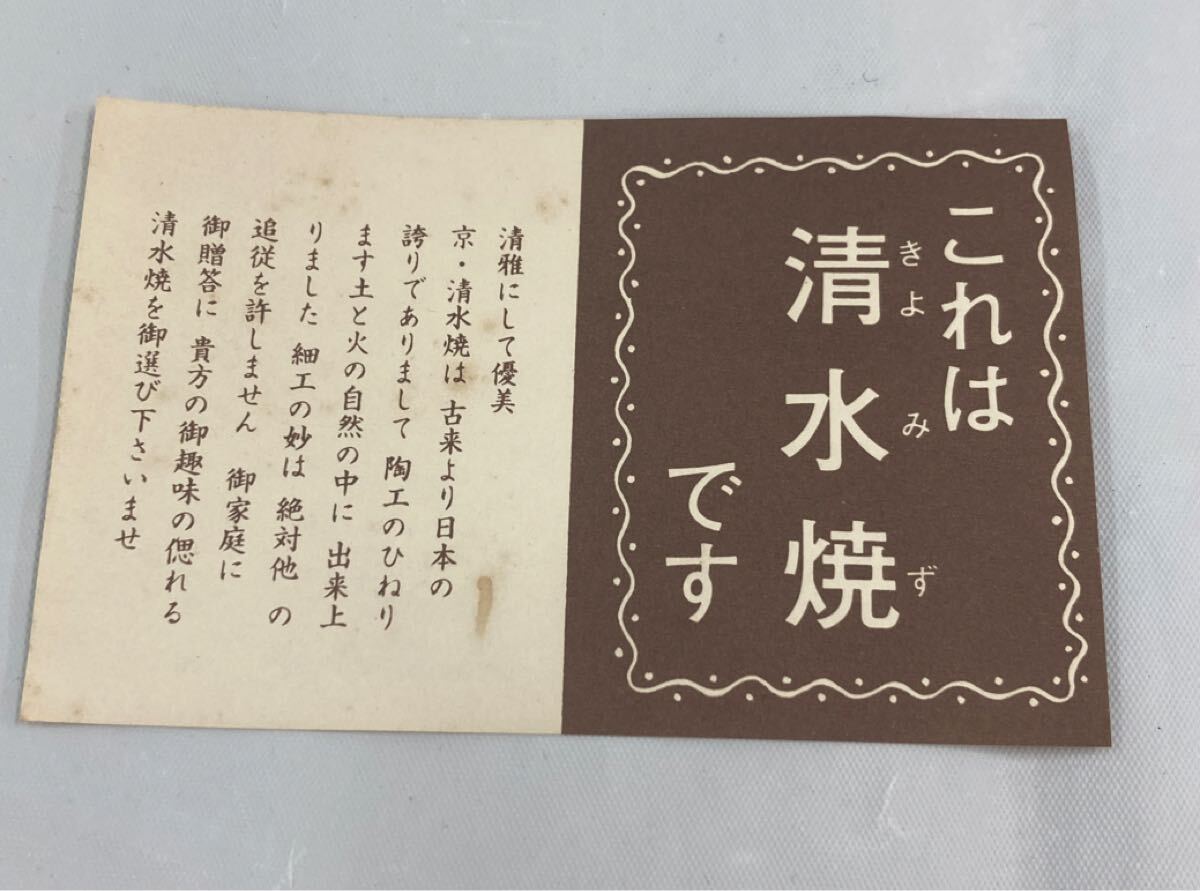 これは
清水焼
きよみず
です
清雅にして優美
京・清水焼は 古来より日本の
誇りでありまして 陶工のひねり
ます土と火の自然の中に 出来上
りました 細工の妙は 絶対他 の
追従を許しません 御家庭に
御贈答に 貴方の御趣味の偲れる
清水焼を御選び下さいませ